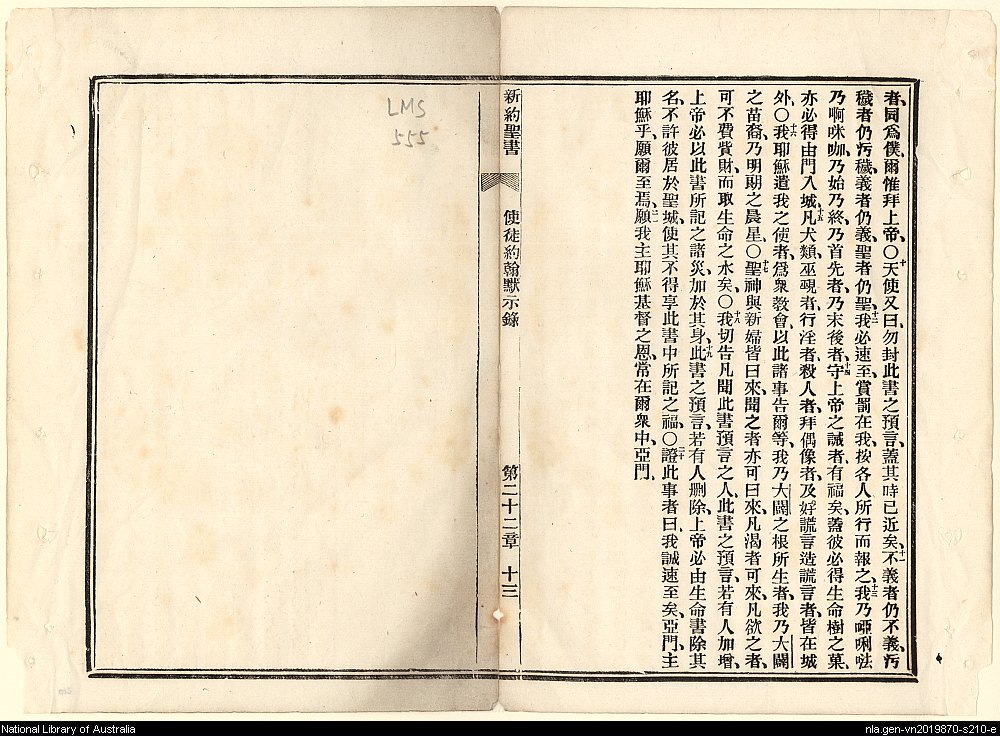 者、同爲僕、爾惟拜上帝、〇十天使又曰、勿封此書之預言、蓋其時已近矣、十一不義者仍不義、污
穢者仍污穢、義者仍義、聖者仍聖、十二我必速至、賞罰在我、按各人所行而報之、十三我乃啞唎呿
乃啊咪咖、乃始乃終、乃首先者、乃末後者、十四守上帝之誡者、有福矣、蓋彼必得生命樹之菓、
亦必得由門入城、十五凡犬類、巫覡者、行淫者、殺人者、拜偶像者、及好謊言造謊言者、皆在城
外、〇十六我耶穌遣我之使者、爲衆教會、以此諸事告爾等、我乃大闢之根所生者、我乃大闢
之苗裔、乃明朗之晨星、〇十七聖神與新婦皆曰來、聞之者亦可曰來、凡渴者可來、凡欲之者、
可不費貲財、而取生命之水矣、〇十八我切告凡聞此書預言之人、此書之預言、若有人加增、
上帝必以此書所記之諸災、加於其身、十九此書之預言、若有人刪除、上帝必由生命書除其
名、不許彼居於聖城、使其不得享此書中所記之福、〇二十證此事者曰、我誠速至矣、亞門、主
耶穌乎、願爾至焉、二一願我主耶穌基督之恩、常在爾衆中、亞門、
新約聖書 使徒約翰默示錄 第二十二章 十三
LMS
555
National Library of Australia
nla.gen-vn2019870-s210-e